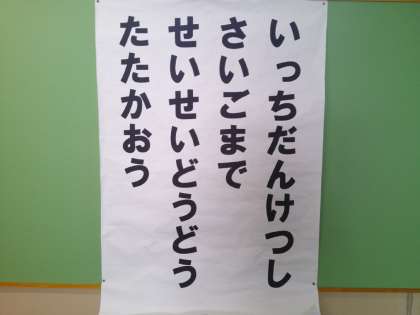 いっちだんけつし
さいごまで
せいせいどうどう
たたかおう